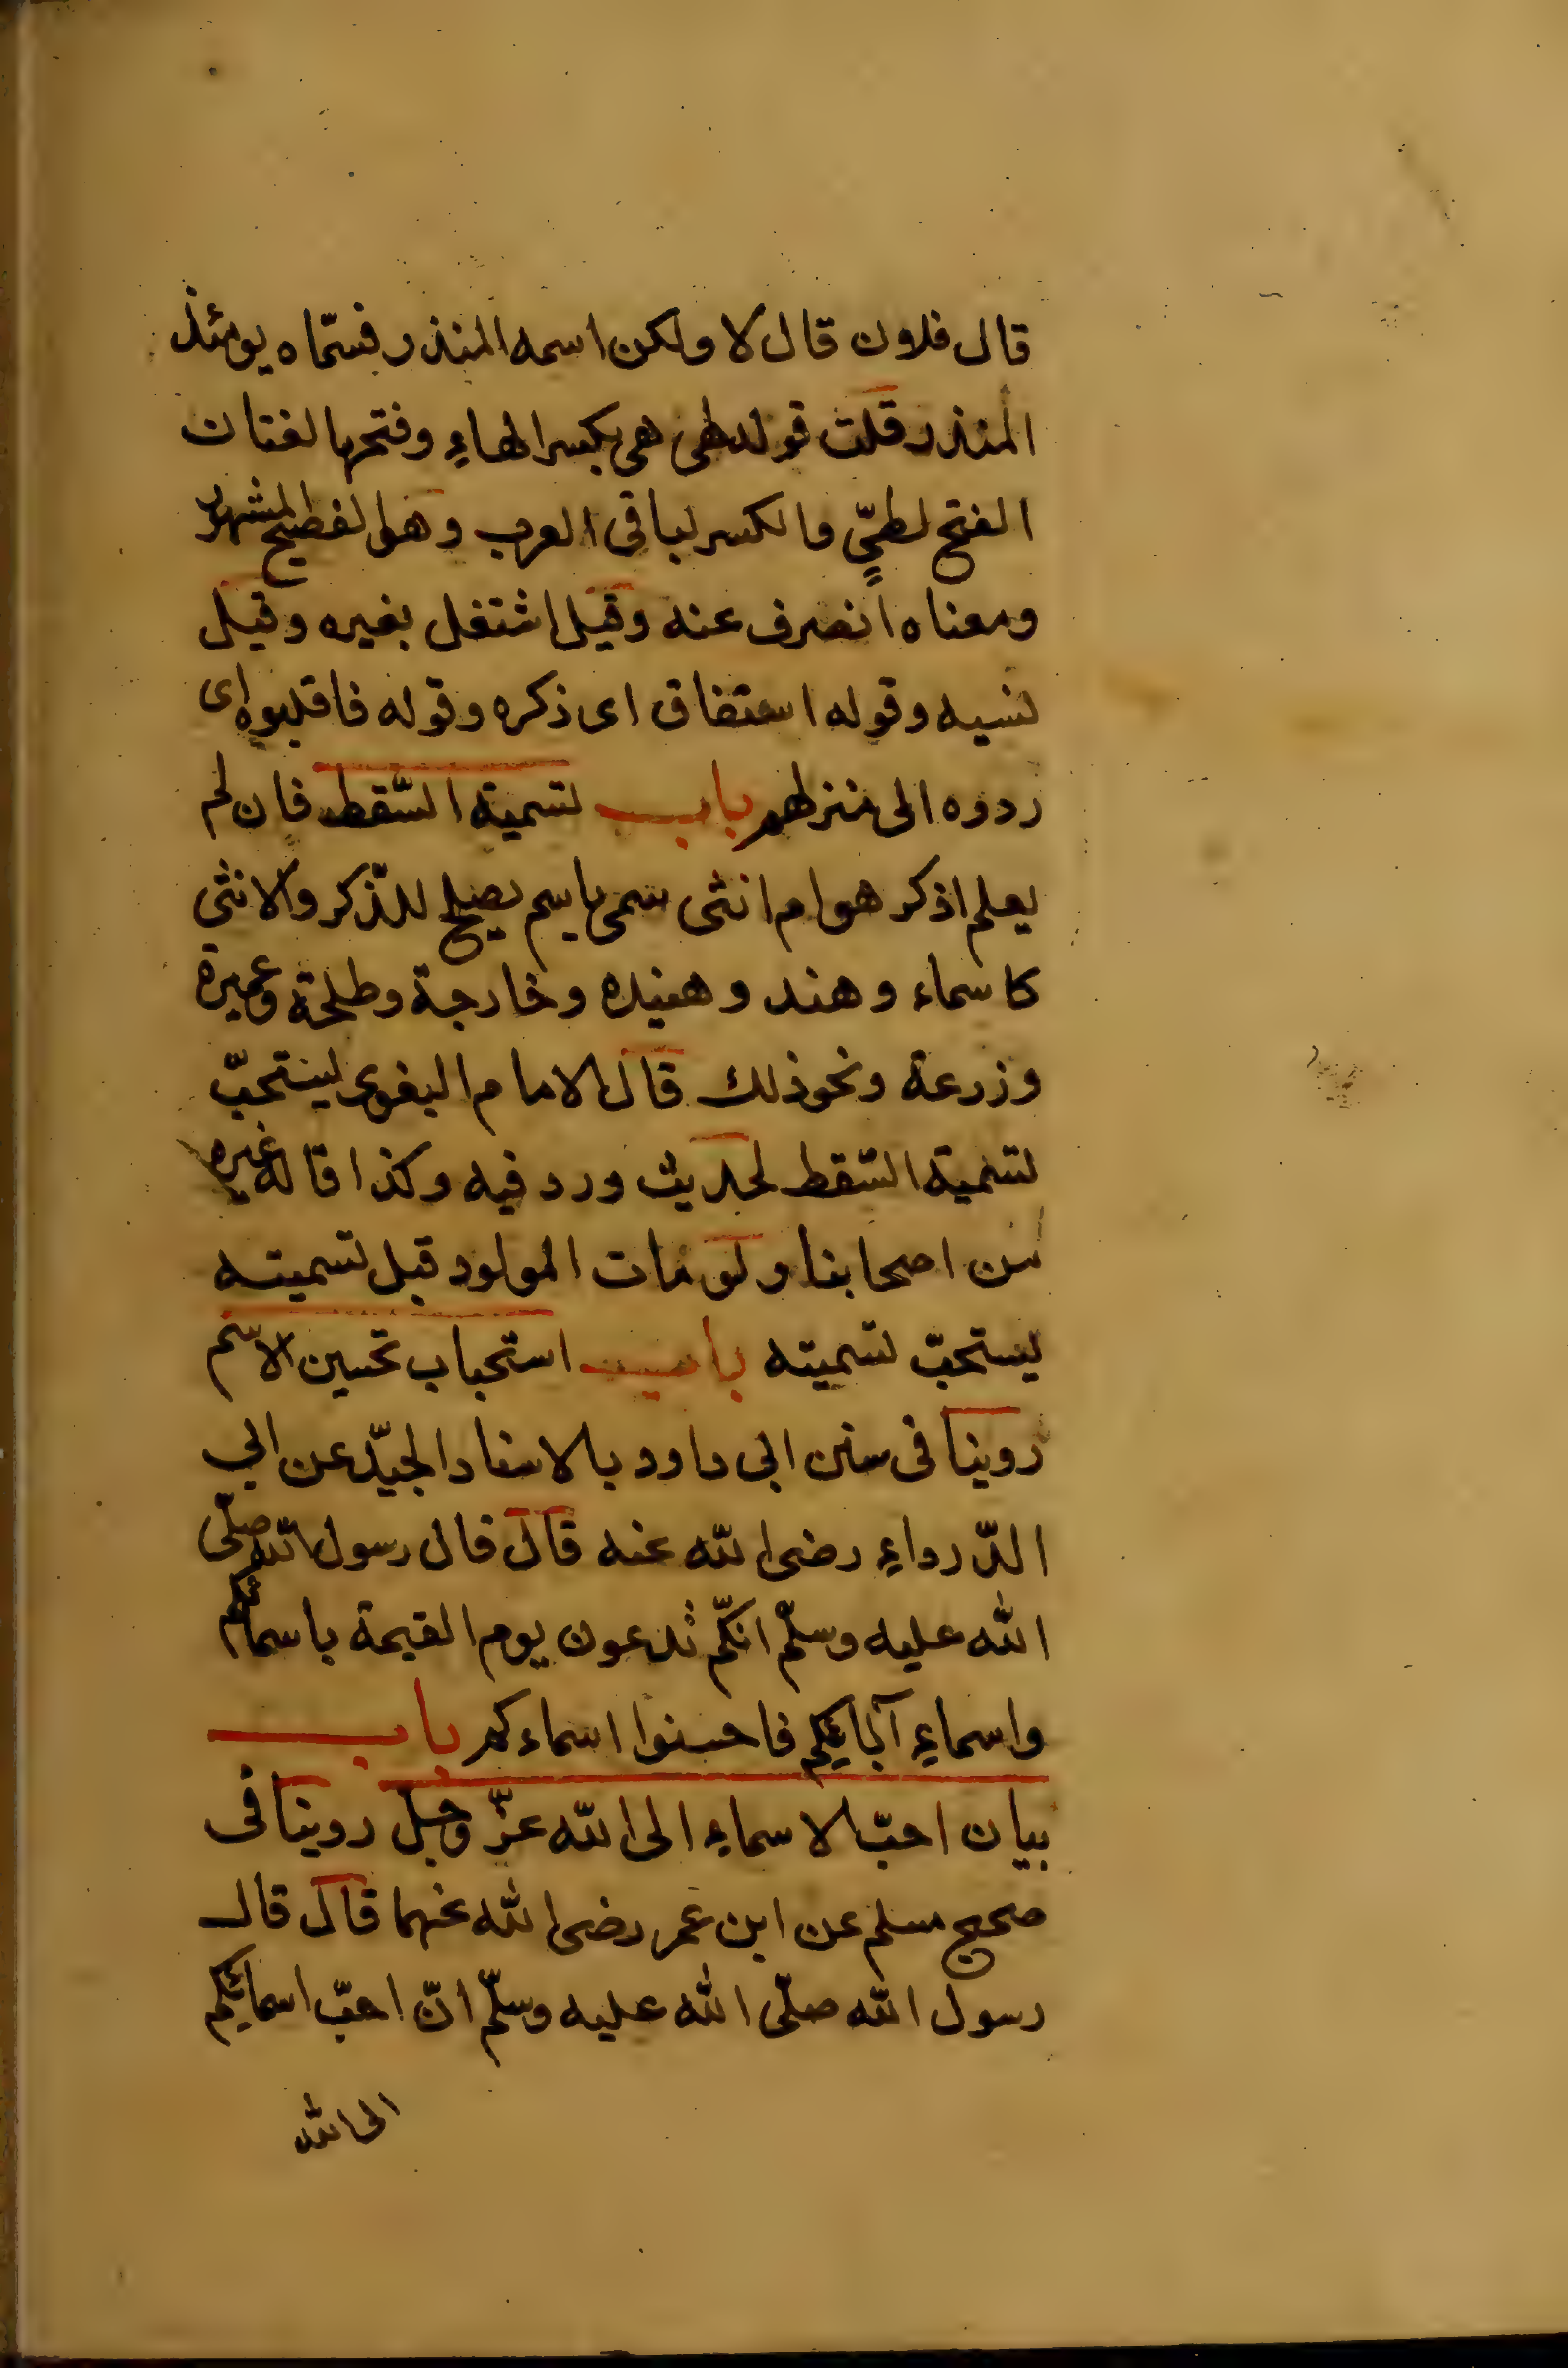 قال فلان قال لا ولكن اسمه المنذر فسمّاه يومئذ
المنذر قلت قوله لهى هى بكسر الهاءِ وفتحها لغتان
الفتح لطىّءٍ والكسر لباقى العرب وهو الفصيح المشهور
ومعناه انصرف عنه وقيل اشتغل بغيره وقيل
نسيه وقوله استفاق اى ذكره وقوله فاقلبوه اى
ردوه الى منزلهم باب تسمية السّقط فان لم
يعلم اذكر هو ام انثى سمى باسم يصلح للذّكر والانثى
كاسماء وهند وهنيده وخارجة وطلحة وعميرة
وزرعة ونحو ذلك قال الامام البغوى يستحبّ
تسمية السّقط لحديث ورد فيه وكذا قاله غيره
من اصحابنا ولو مات المولود قبل تسميته
يستحبّ تسميته باب استحباب تحسين الاسم
روينا فى سنن ابى داود بالاسناد الجيّد عن ابي
الدّرداءِ رضى الله عنه قال قال رسول الله صلّى
الله عليه وسلّم انّكم تدعون يوم القيمة باسمائكم
واسماءِ آبائكم فاحسنوا اسماءكم باب
بيان احبّ الاسماءِ الى الله عزّ وجلّ روينا فى
صحيح مسلم عن ابن عمر رضى الله عنهما قال قال
رسول الله صلّى الله عليه وسلّم انّ احبّ اسمائكم
الى الله